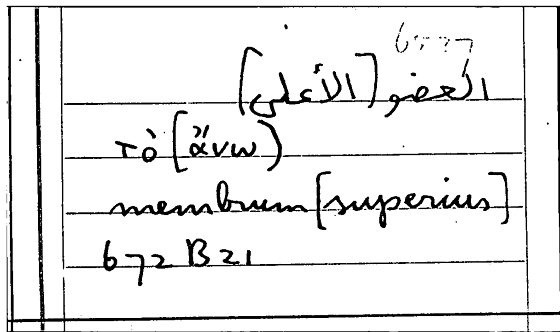 العضو [الأعلى]
τὸ [ἄνω)
membrum [superius]
672 B 21